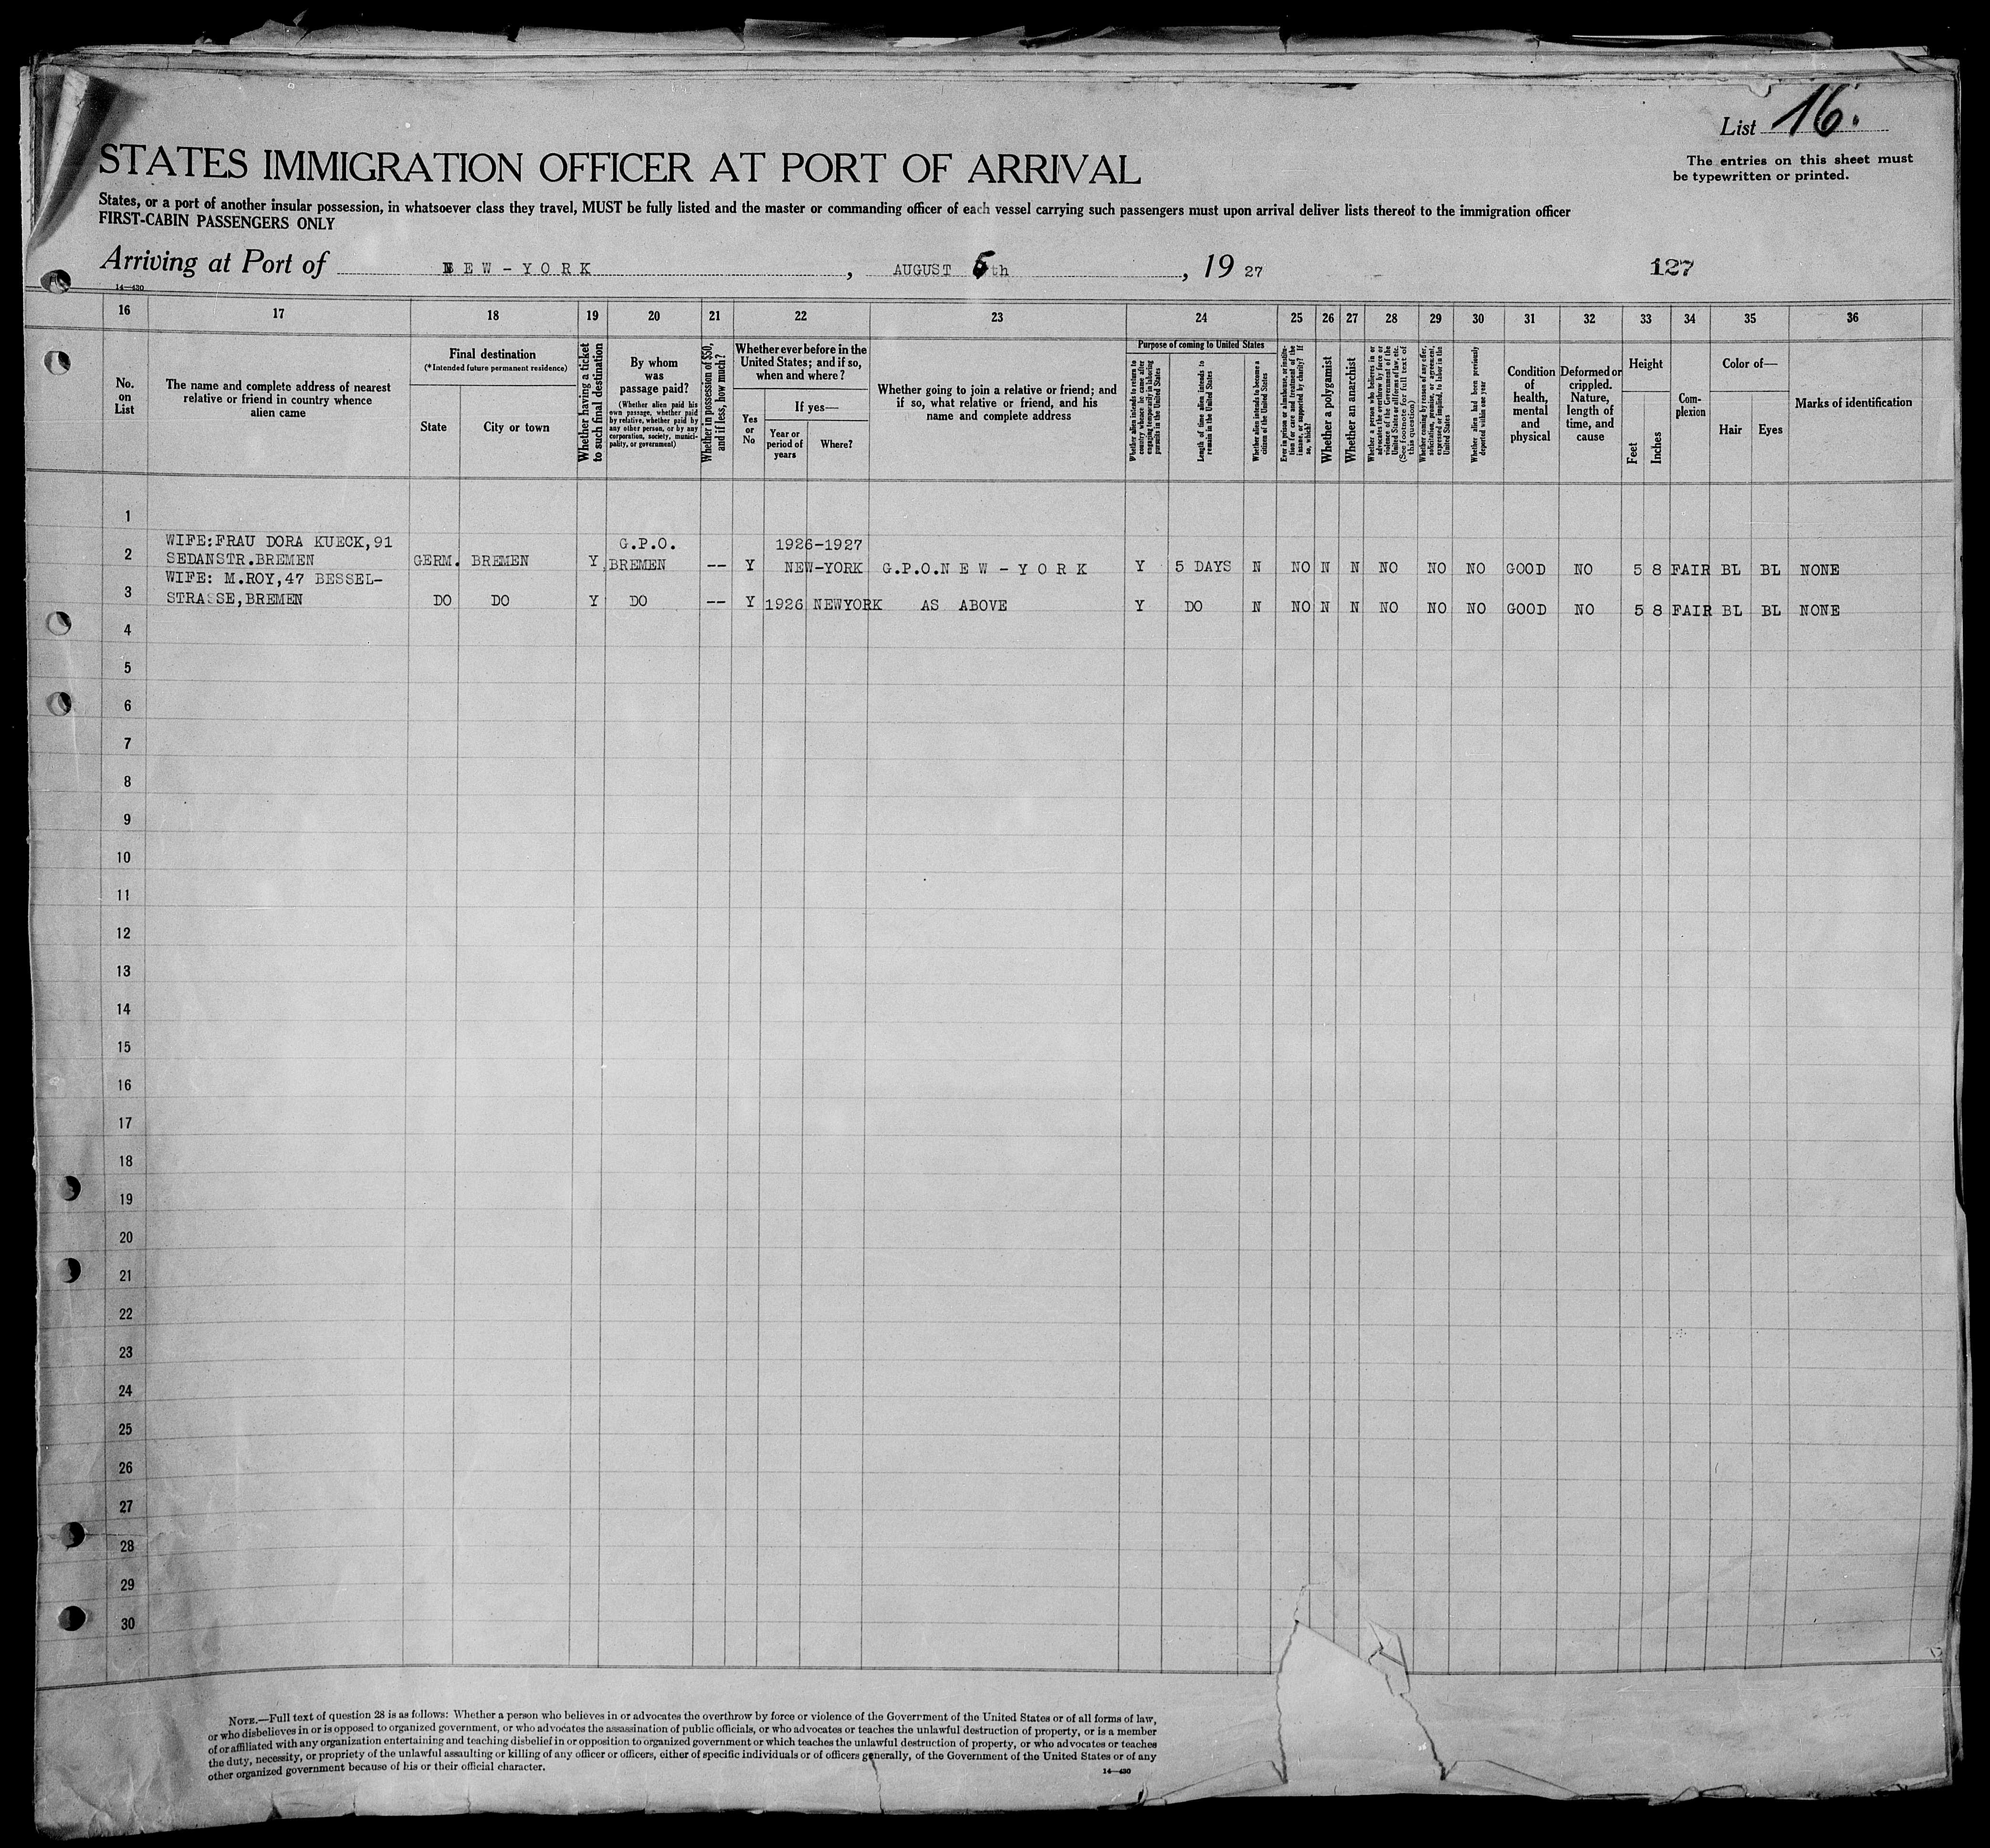 List 16.
The entries on this sheet must
be typewritten or printed.
STATES IMMIGRATION OFFICER AT PORT OF ARRIVAL
States, or a port of another insular possession, in whatsoever class they travel, MUST be fully listed and the master or commanding officer of each vessel carrying such passengers must upon arrival deliver lists thereof to the immigration officer
FIRST-CABIN PASSENGERS ONLY
Arriving at Port of NEW-YORK, AUGUST 5th, 1927
127
14—430
16 17 18 19 20 21 22 23 24 25 26 27 28 29 30 31 32 33 34 35 36
No.
on
List
The name and complete address of nearest
relative or friend in country whence
alien came
Final destination
(*Intended future permanent residence)
State
City or town
Whether having a ticket
to such final destination
By whom
was
passage paid?
(Whether alien paid his
own passage, whether paid
by relative, whether paid by
any other person, or by any
corporation, society, munici-
pality, or government)
Whether in possession of $50,
and if less, how much?
Whether ever before in the
United States; and if so,
when and where?
Yes
or
No
If yes—
Year or
period of
years
Where?
Whether going to join a relative or friend; and
if so, what relative or friend, and his
name and complete address
Purpose of coming to United States
Whether alien intends to return to
country whence he came after
engaging temporarily in laboring
pursuits in the United States
Length of time alien intends to
remain in the United States
Whether alien intends to become a
citizen of the United States
Ever in prison or almshouse, or institu-
tion for care and treatment of the
insane, or supported by charity? If
so, which?
Whether a polygamist
Whether an anarchist
Whether a person who believes in or
advocates the overthrow by force or
violence of the Government of the
United States or all forms of law, etc.
(See footnote for full text of
this question)
Whether coming by reason of any offer,
solicitation, promise, or agreement,
expressed or implied, to labor in the
United States
Whether alien had been previously
deported within one year
Condition
of
health,
mental
and
physical
Deformed or
crippled.
Nature,
length of
time, and
cause
Height
Feet
Inches
Com-
plexion
Color of—
Hair
Eyes
Marks of identification
1
WIFE:FRAU DORA KUECK,91 G.P.O. 1926-1927
2 SEDANSTR.BREMEN GERM. BREMEN Y BREMEN -- Y NEW-YORK G.P.O.NEW-YORK Y 5 DAYS N NO N N NO NO NO GOOD NO 5 8 FAIR BL BL NONE
WIFE: M.ROY,47 BESSEL-
3 STRASSE,BREMEN DO DO Y DO -- Y 1926 NEWYORK AS ABOVE Y DO N NO N N NO NO NO GOOD NO 5 8 FAIR BL BL NONE
4
5
6
7
8
9
10
11
12
13
14
15
16
17
18
19
20
21
22
23
24
25
26
27
28
29
30
NOTE.—Full text of question 28 is as follows: Whether a person who believes in or advocates the overthrow by force or violence of the Government of the United States or of all forms of law,
or who disbelieves in or is opposed to organized government, or who advocates the assassination of public officials, or who advocates or teaches the unlawful destruction of property, or is a member
of or affiliated with any organization entertaining and teaching disbelief in or opposition to organized government or which teaches the unlawful destruction of property, or who advocates or teaches
the duty, necessity, or propriety of the unlawful assaulting or killing of any officer or officers, either of specific individuals or of officers generally, of the Government of the United States or of any
other organized government because of his or their official character.
14—430